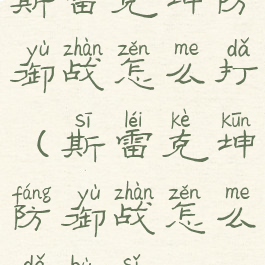 斯雷克坤防
yù zhàn zěn me dǎ
御战怎么打
sī léi kè kūn
(斯雷克坤
fáng yù zhàn zěn me
防御战怎么